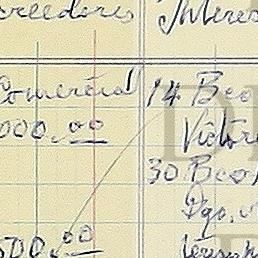 creedores Interes
Comercial 14 Bco
000.00 Victor
30 Bco
Dgo.
500.00